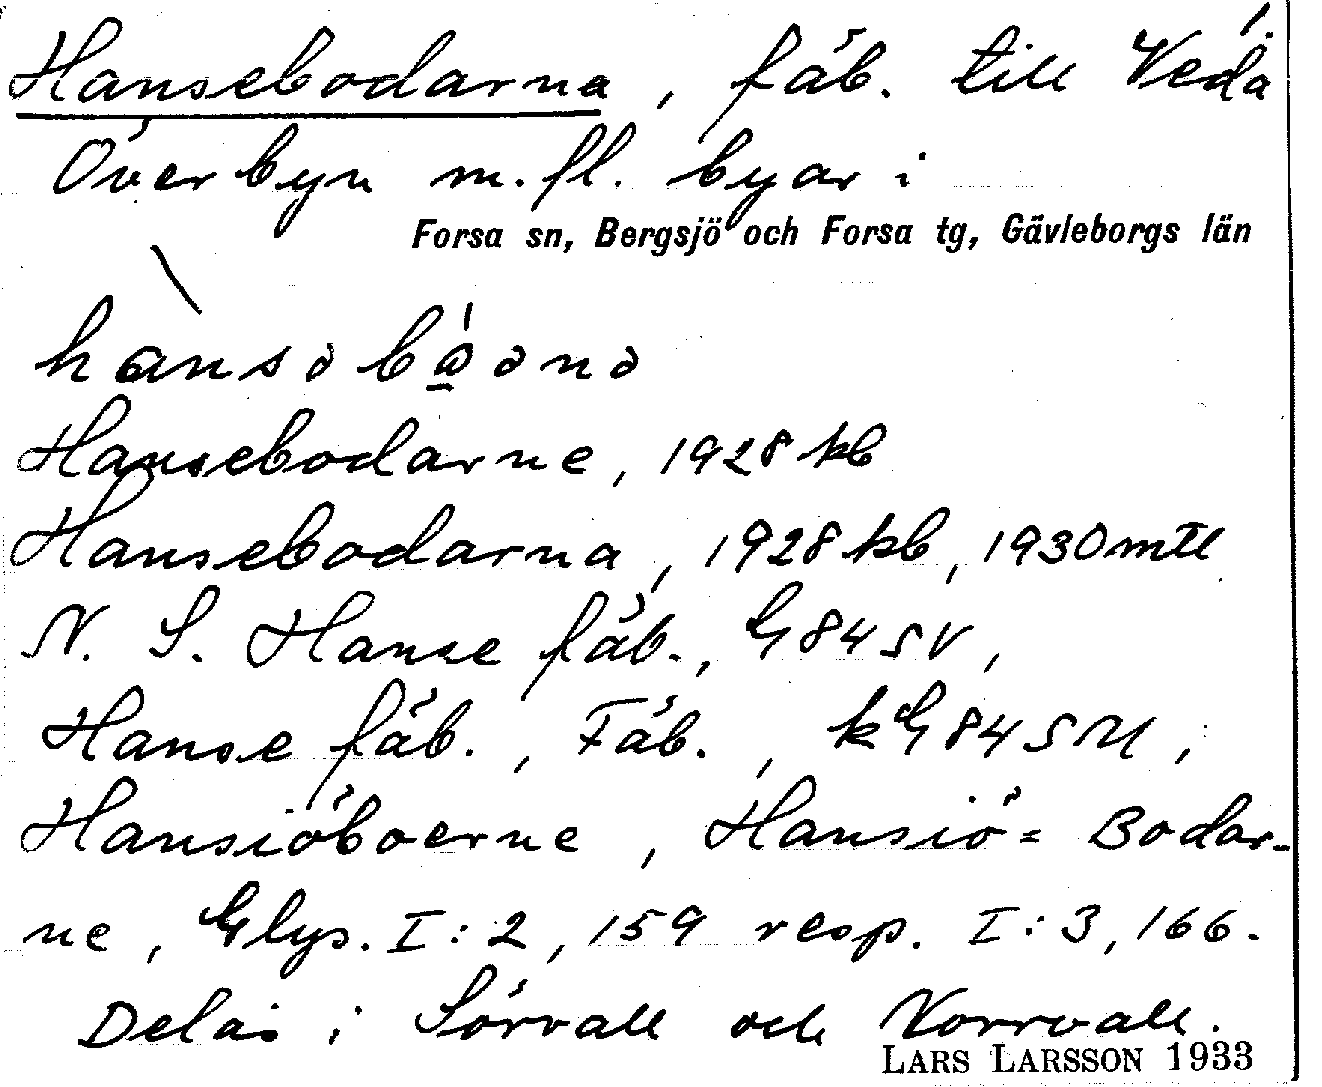 Hansebodarna, fäb. till Veda
Överbyn m.fl. byar i
Forsa sn, Bergsjö och Forsa tg, Gävleborgs län
Hansebodarne, 1928 kb
Hansebodarna, 1928 kb, 1930 mtl
N. S. Hanse fäb., G84SV,
Hanse fäb., Fäb., kG84SM,
Hansiöboerne, Hansiö= Bodar-
ne, Glys. I:2, 159 resp. I:3, 166.
Delas i Sörvall och Norrvall.
LARS LARSSON 1933